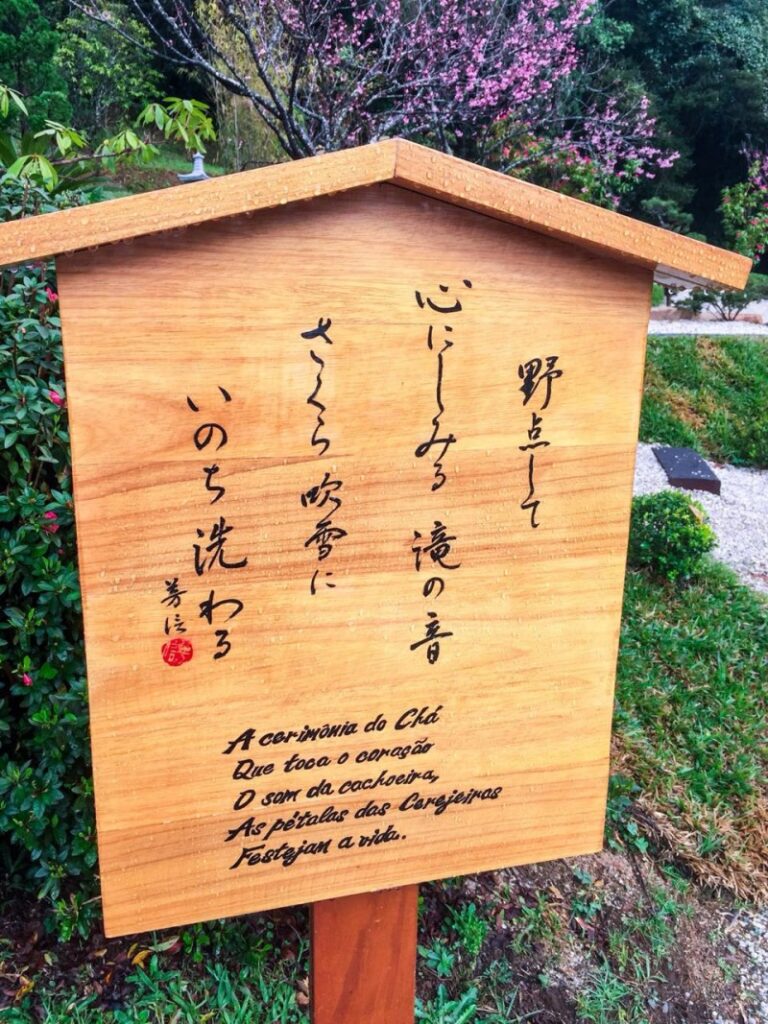 野点して
心にしみる 滝の音
さくら 吹雪に
いのち 洗わる
芳信
A cerimônia do Chá
Que toca o coração
O som da cachoeira,
As pétalas das Cerejeiras
Festejam a vida.